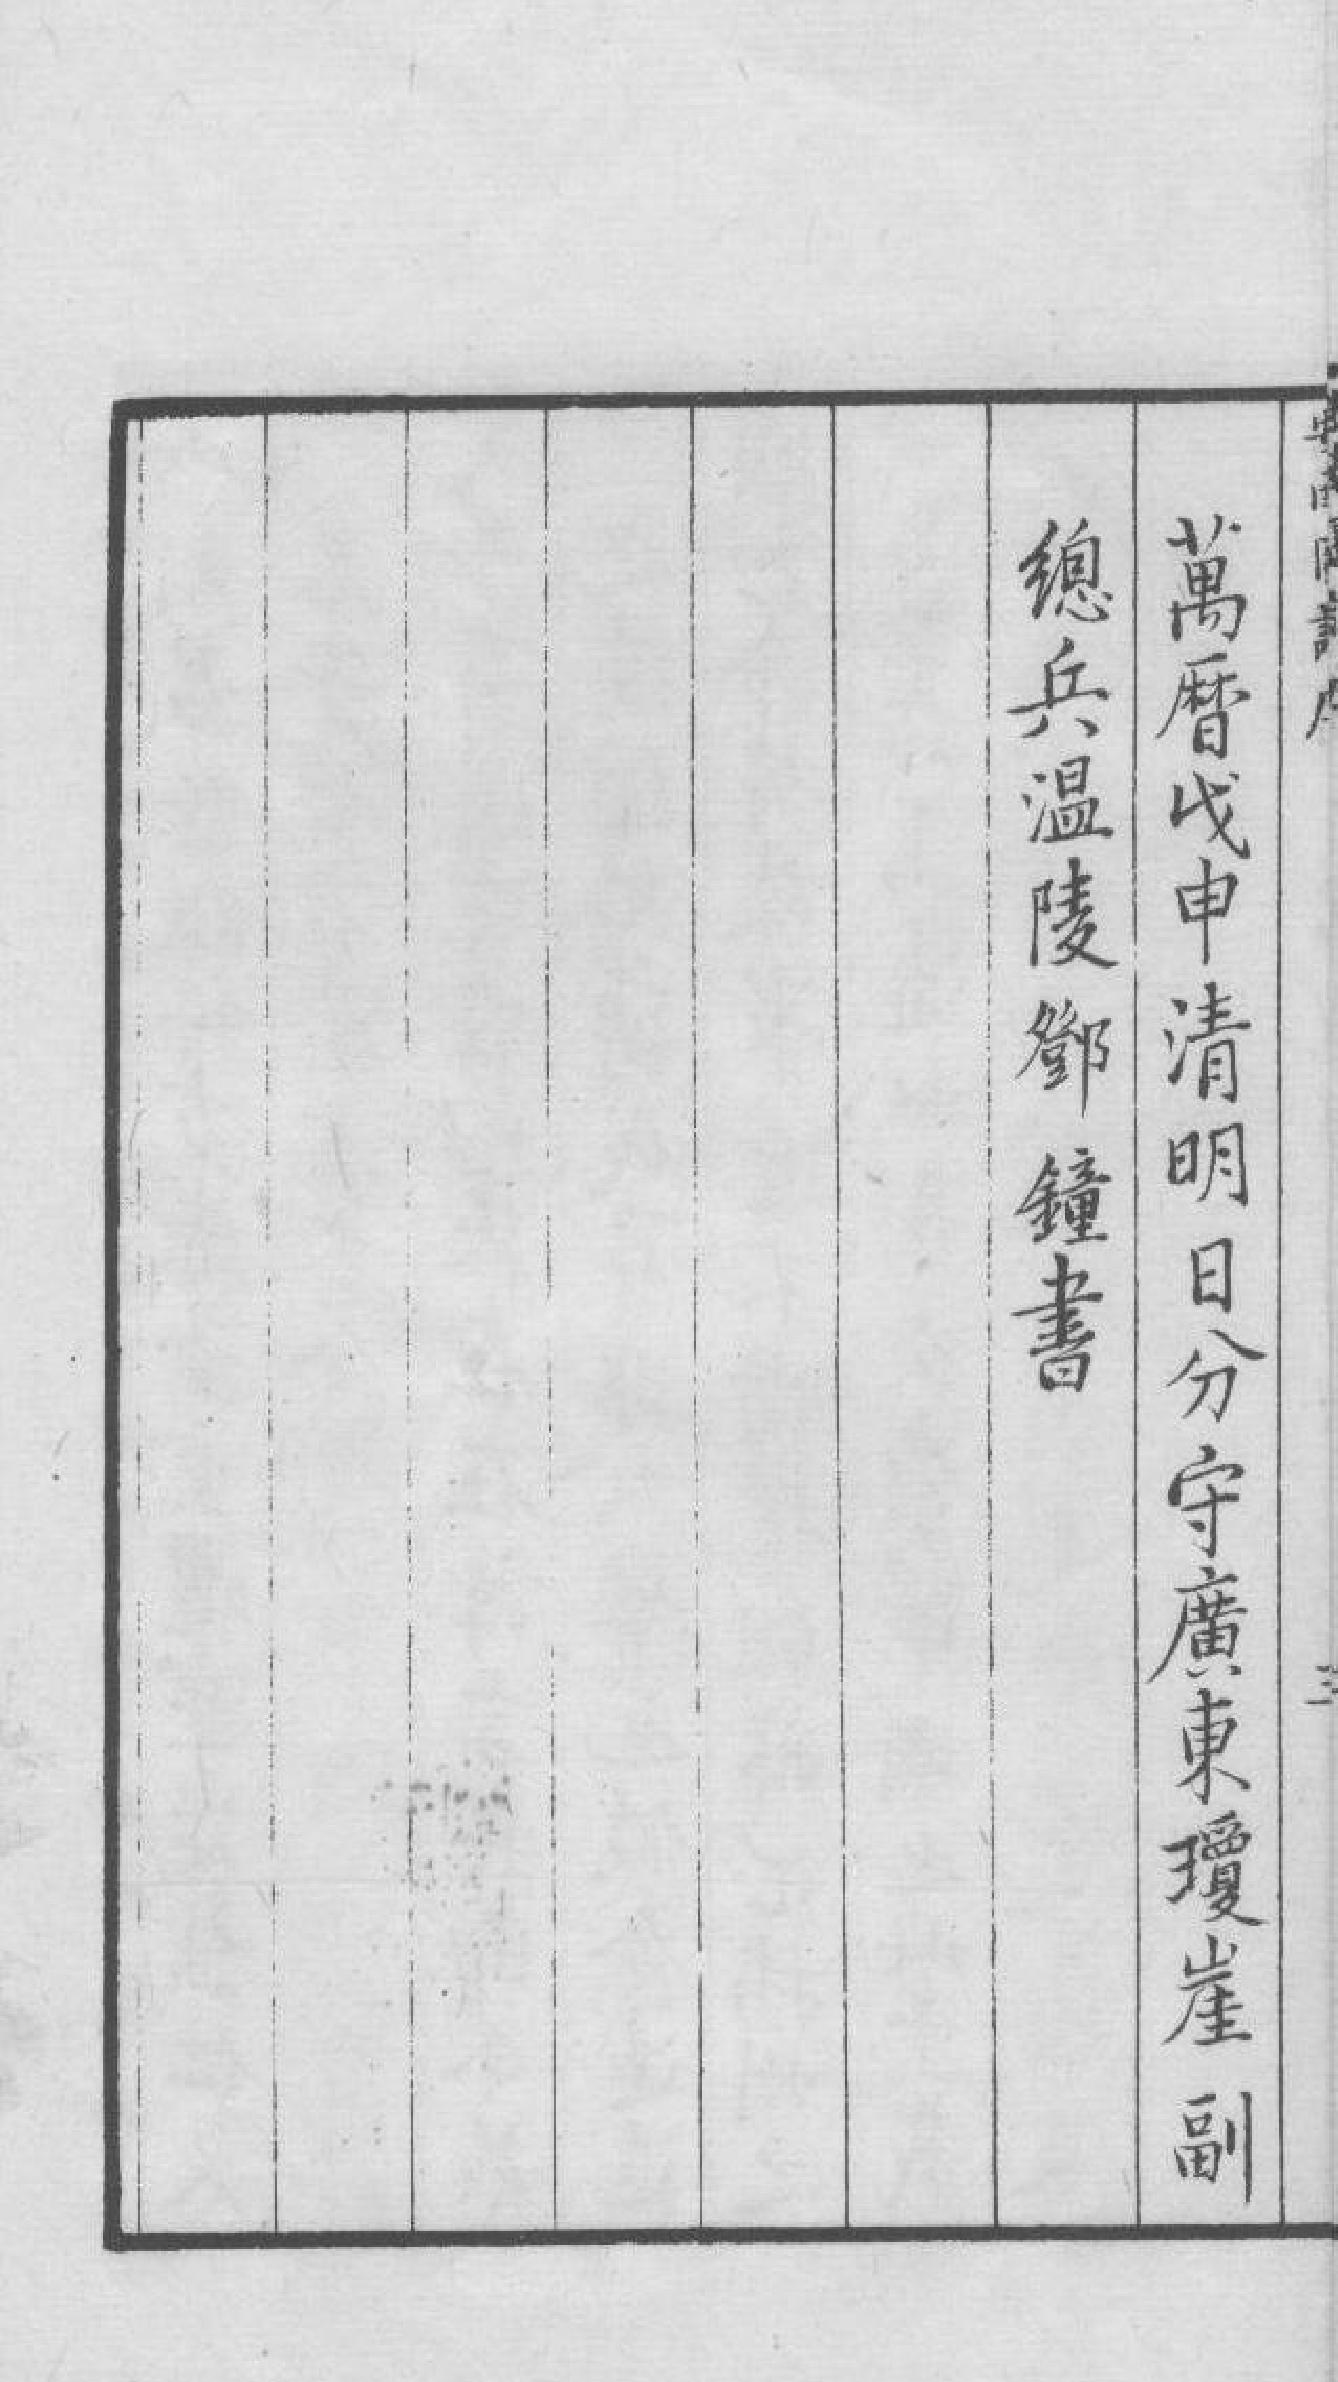 萬曆戊申清明日分守廣東瓊崖副
總兵温陵鄧鐘書